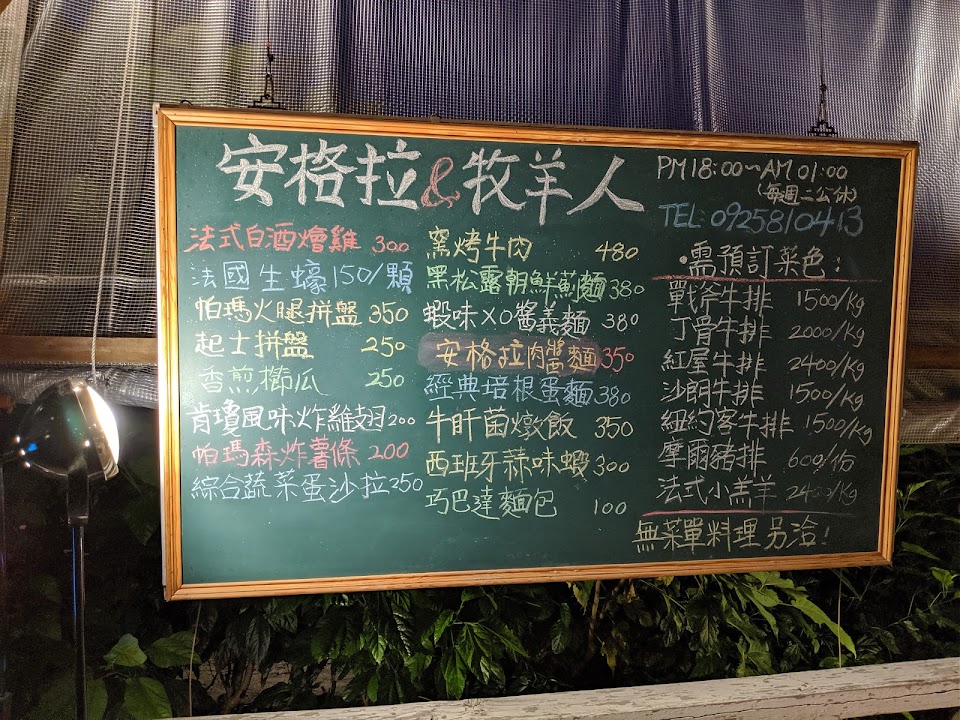 安格拉&牧羊人
PM 18:00~AM 01:00
(每週二公休)
TEL: 0925810413
法式白酒燴雞 300
法國生蠔 150/顆
帕瑪火腿拼盤 350
起士拼盤 250
香煎櫛瓜 250
肯瓊風味炸雞翅 200
帕瑪森炸薯條 200
綜合蔬菜蛋沙拉 250
窯烤牛肉 480
黑松露朝鮮薊麵 380
蝦味XO醬義麵 380
安格拉肉醬麵 350
經典培根蛋麵 380
牛肝菌燉飯 350
西班牙蒜味蝦 300
巧巴達麵包 100
•需預訂菜色:
戰斧牛排 1500/Kg
丁骨牛排 2000/Kg
紅屋牛排 2400/Kg
沙朗牛排 1500/Kg
紐約客牛排 1500/Kg
摩爾豬排 600/份
法式小羔羊 2400/Kg
無菜單料理另洽!